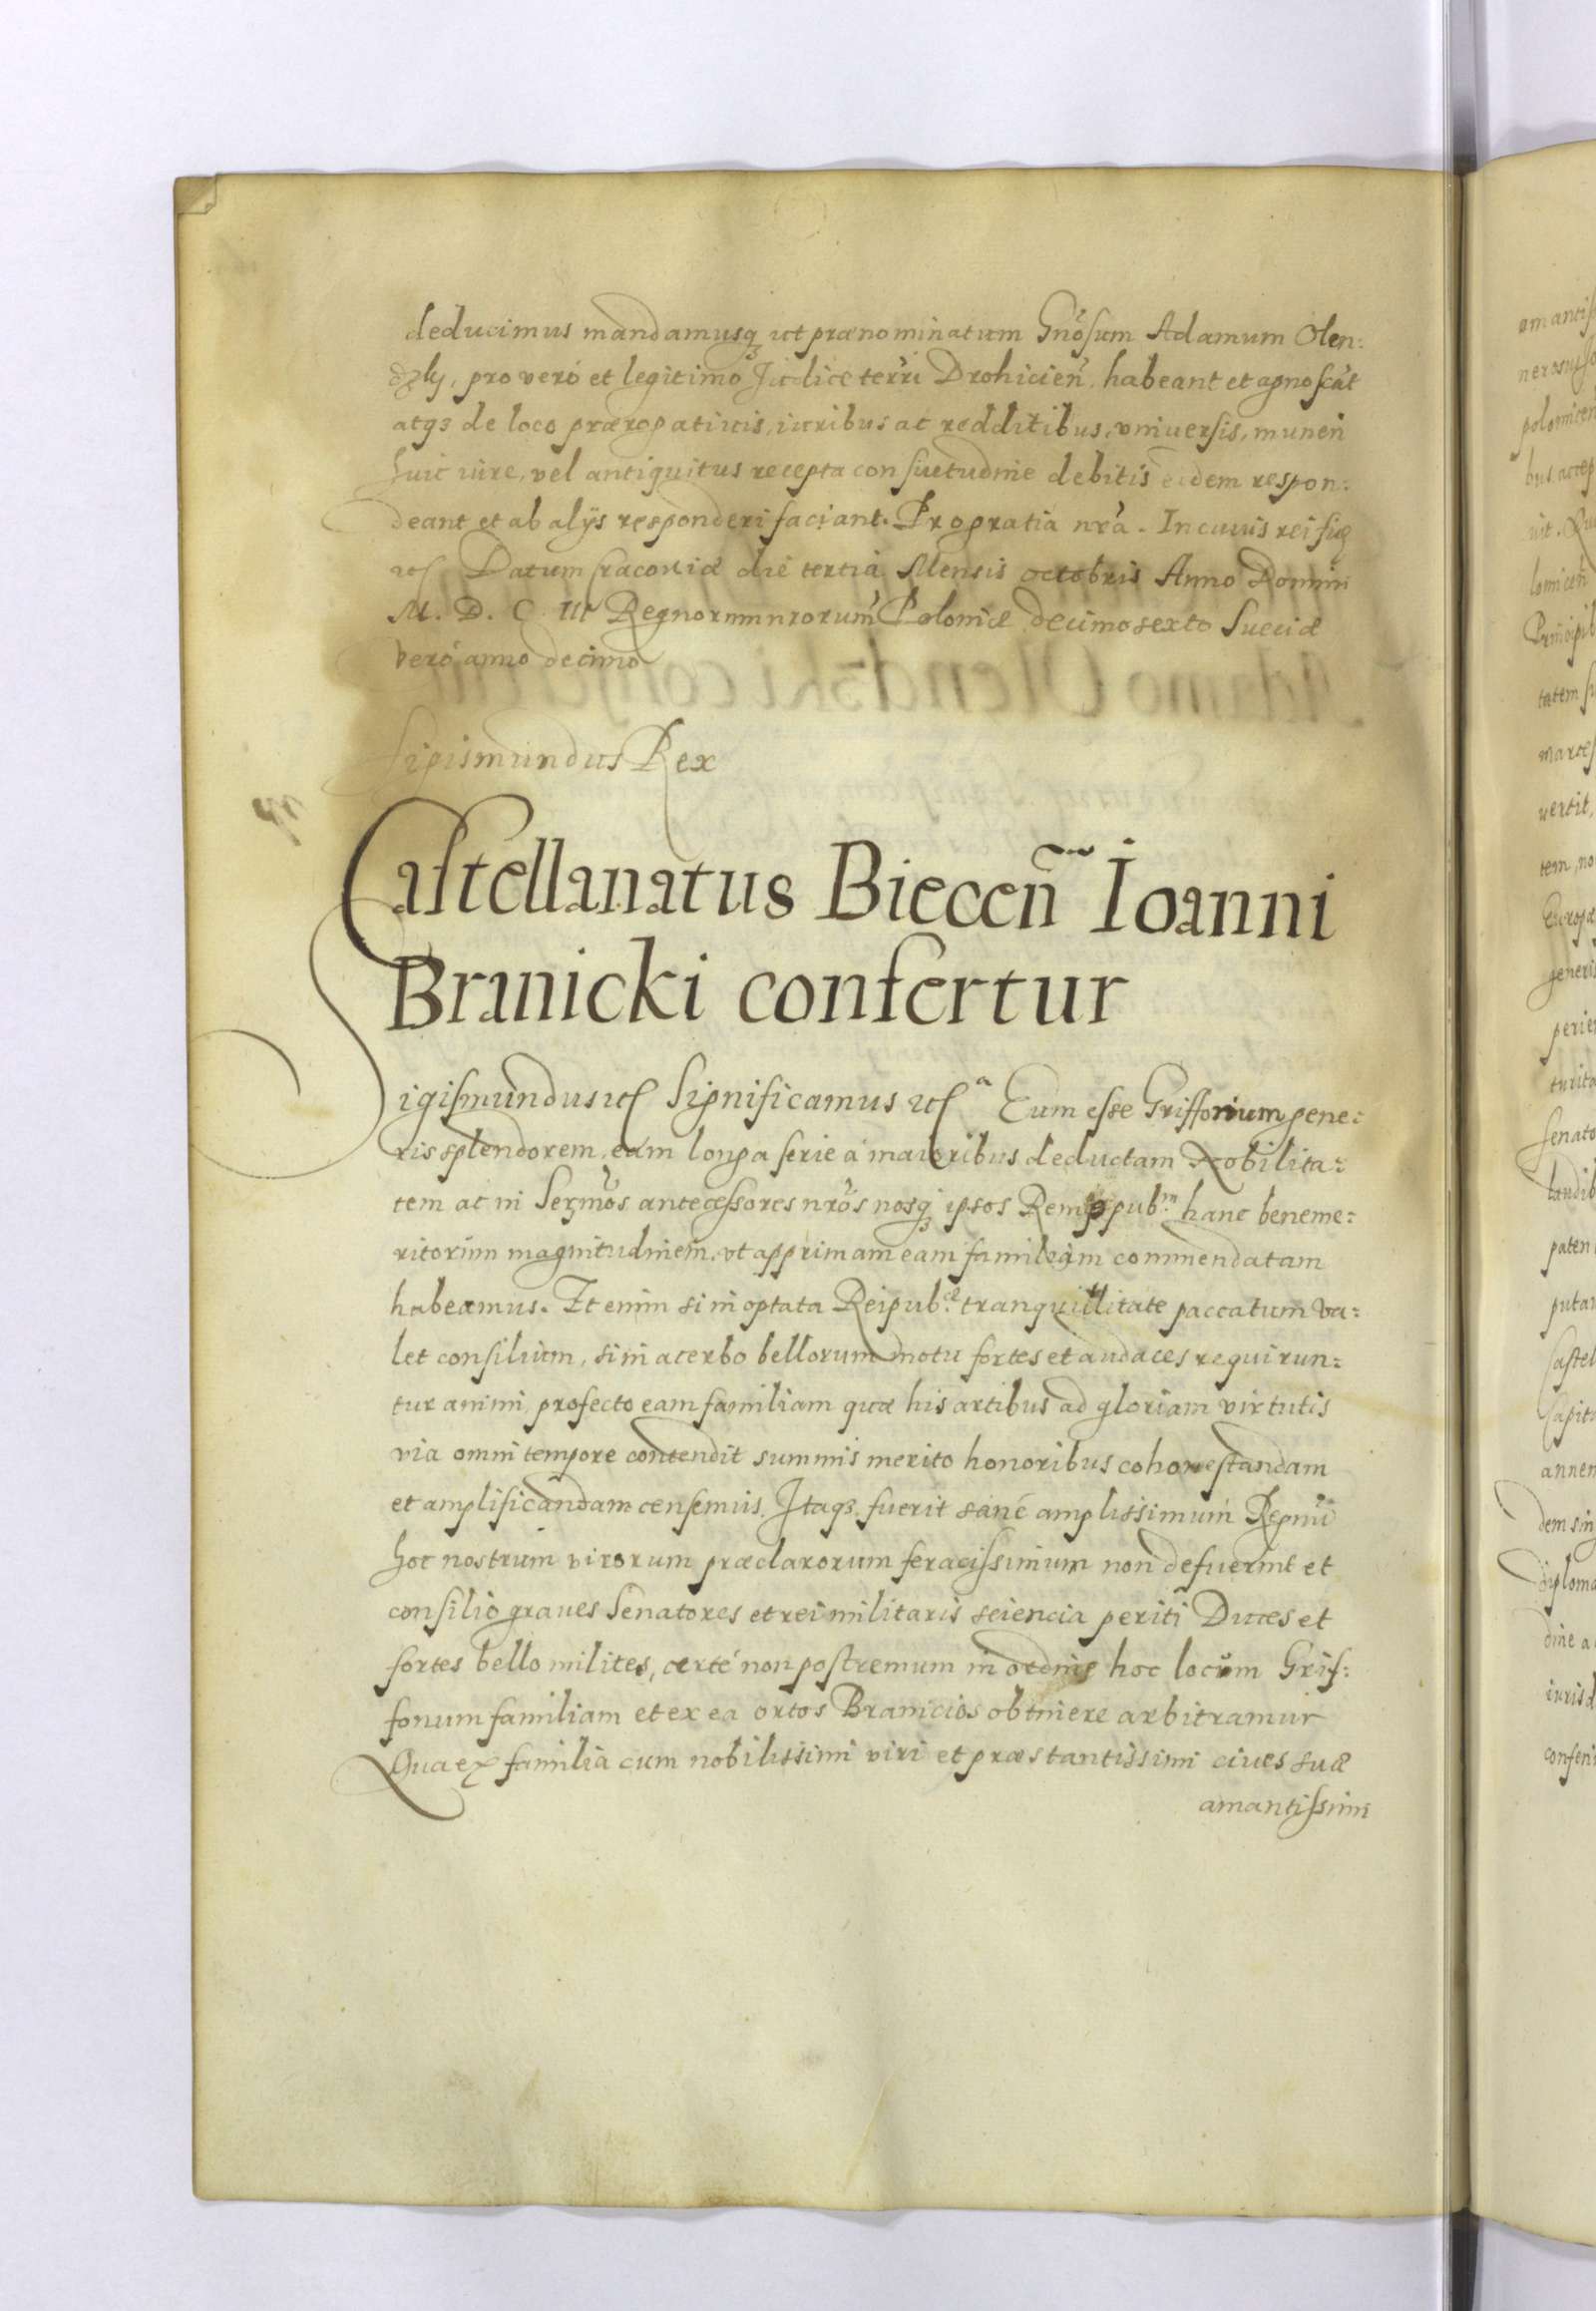 deducimus mandamusq₃ ut prænominatum Gnõsum Adamum Olen:
dzky, pro veró et legitimo Judice terrῖ Drohicieñ. habeant et agnoscãt
atq₃ de loco prærogatiuis, iuribus ac redditibus, vniuersis, muneri
huic iure, vel antiquitus recepta consuetudine debitis eidem respon:
deant et ab alijs responderi faciant. Pro gratia nrã. In cuius rei fidẽ
etc Datum Cracouiæ die tertia Mensis octobris Anno Domini
M. D. C. III Regnorum nrorum Poloniæ decimo sexto Sueciæ
veró anno decimo
Sigismundus Rex
Castellanatus Bieceñ Ioanni
Branicki confertur
Sigismundus etc Significamus etc ᵃ Eum esse Griffonum gene:
ris splendorem, eam longa serie á maioribus deductam Nobilita:
tem ac in Serm̃os antecessores nrõs nosq₃ ipsos Remppubᵐ hanc beneme:
ritorum magnitudinem, vt apprimam eam familiam commendatam
habeamus. Et enim si in optata Reipubᶜᵉ tranquillitate paccatum va:
let consilium, si in acerbo bellorum motu fortes et audaces requirun:
tur animi, profecto eam familiam quæ his artibus ad gloriam virtutis
via omni tempore contendit summis merito honoribus cohonestandam
et amplificandam censemus. Itaq₃ fuerit sané amplissimum Regnũ
hoc nostrum virorum præclarorum feracissimum non defuerint et
consilio graues Senatores et rei militaris sciencia periti Duces et
fortes bello milites, certé non postremum in ordine hoc locum Grif:
fonum familiam et ex ea ortos Branicios obtinere arbitramur
Qua ex familia cum nobilissimi viri et præstantissimi ciues suæ
amantissimi